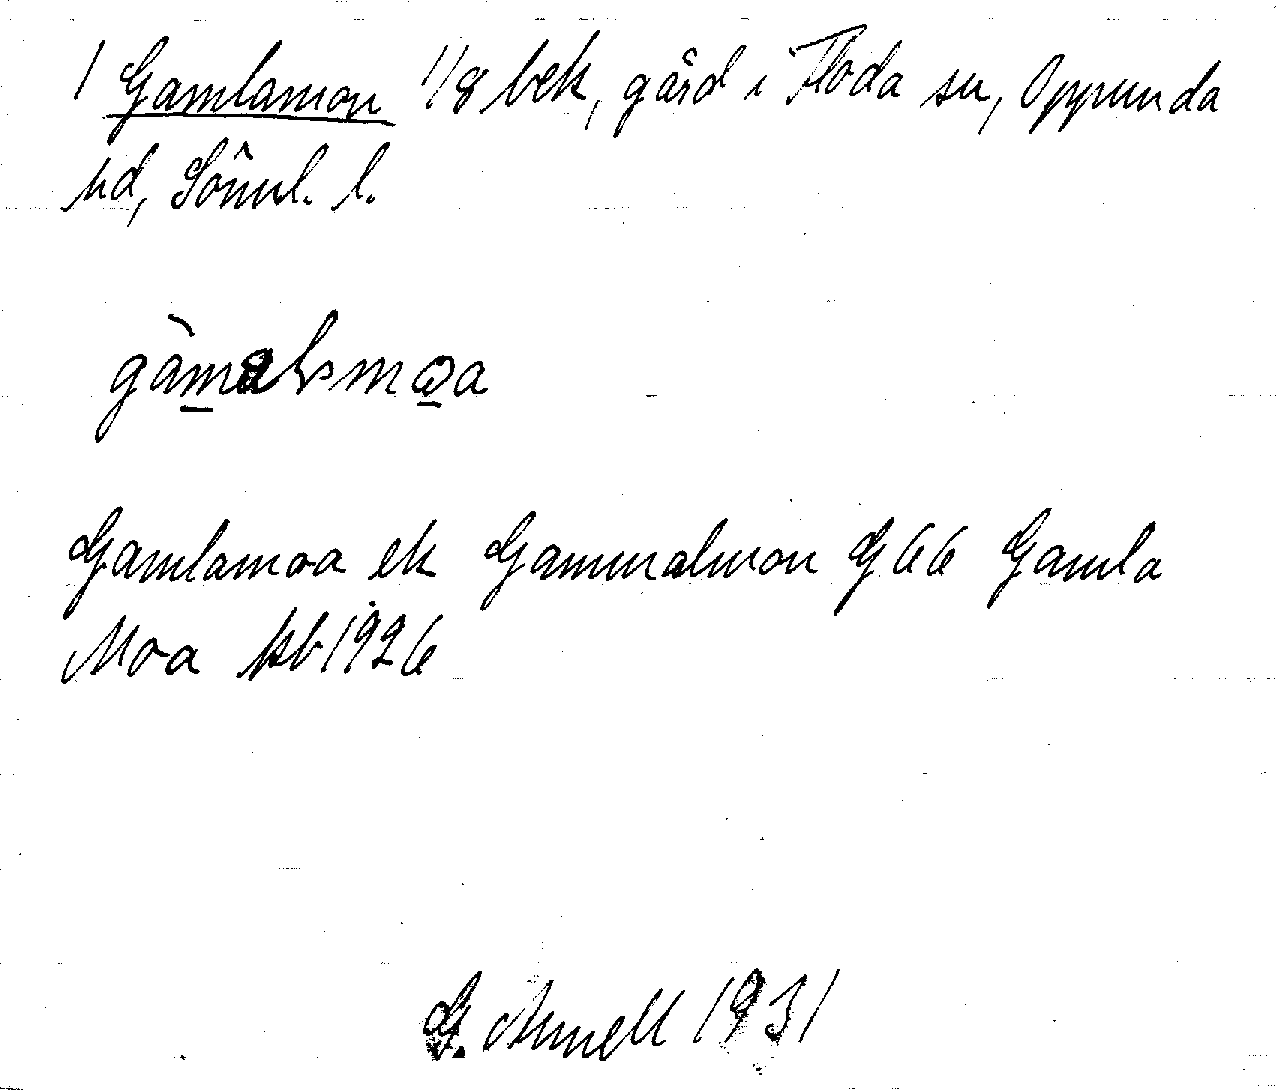 1 Gamlamon 1/8 bek, gård i Floda sn, Oppunda
hd, Söml. l.
gàmalsmoa
Gamlamoa ek Gammalmon G66 Gamla
Moa kb 1926
G. Arnell 1931